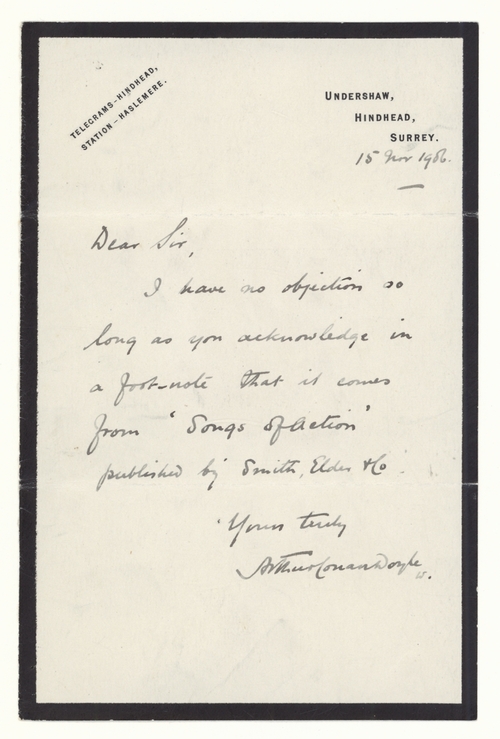 TELEGRAMS-HINDHEAD,
STATION-HASLEMERE.
UNDERSHAW,
HINDHEAD,
SURREY.
15 Nov 1906.
Dear Sir,
I have no objection so
long as you acknowledge in
a foot-note that it comes
from 'Songs of Action'
published by Smith, Elder & Co.
Yours truly
Arthur Conan Doyle